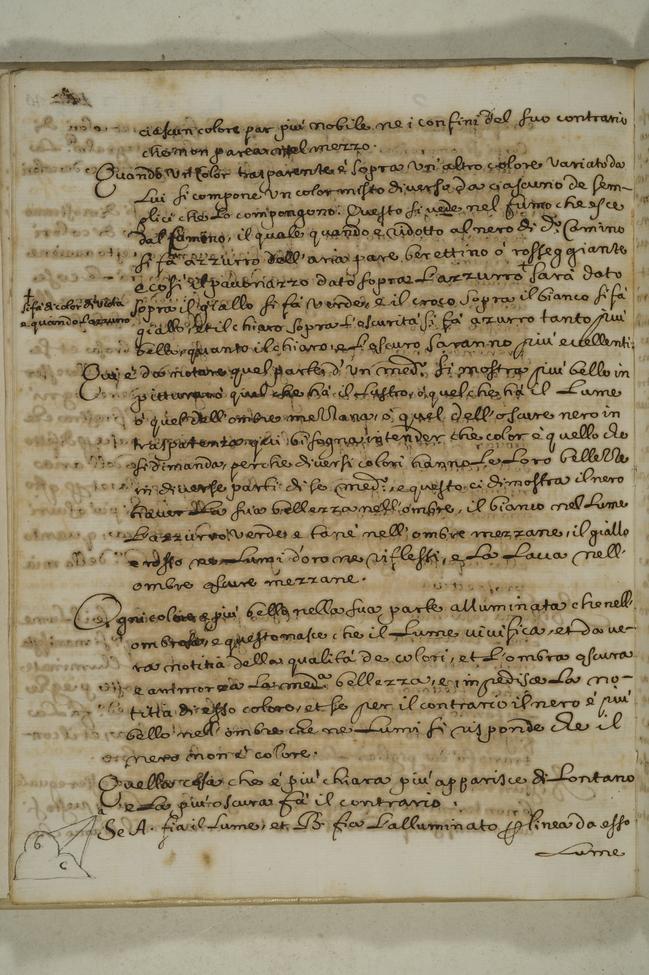 ciascun colore par più nobile ne i confini del suo contrario
che non parea nel mezzo.
Quando un color trasparente è sopra un altro colore variato da
lui si compone un color misto diverso da ciascuno de sem-
plici che lo compongono. Questo si vede nel fumo che esce
dal camino, il quale quando è ridotto al nero di d.º Camino
si fà azzurro dall'aria pare berettino ò rosseggiante
e così il pavonazzo dato sopra l'azzurro sarà dato
† si fà di color di viola
e quando l'azzurro
sopra il giallo si fà verde, e il croco sopra il bianco si fà
giallo, et il chiaro sopra l'oscurità si fà azurro tanto più
bello, quanto il chiaro, e l'oscuro saranno più eccellenti.
Qui è da notare quel parte d'un med.º si mostra più bello in
pittura ò qual che hà il lustro, ò quel che hà il lume
ò quel dell'ombre mezzana, ò quel dell'oscure nero in
trasparenza, qui bisogna intender che color è quello che
si dimanda, perche diversi colori hanno le loro bellezze
in diverse parti di se med.º, e questo ci dimostra il nero
haver la sua bellezza nell'ombre, il bianco nel lume
l'azzurro verde e tanè nell'ombre mezzane, il giallo
e rosso ne lumi d'oro ne riflessi, e la lacca nell'
ombre oscure mezzane.
Ogni colore è più bello nella sua parte alluminata che nell'
ombrosa, e questo nasce che il lume vivifica, et da ve-
ra notitia della qualità de colori, et l'ombra oscura
e ammorza la med.ª bellezza, e impedisce la no-
titia di esso colore, et se per il contrario il nero è più
bello nell'ombre che ne lumi si risponde che il
nero non è colore.
Quella cosa che è più chiara più apparisce di lontano
e la più oscura fà il contrario.
Se A. sia il lume, et B. sia l'alluminato p linea da esso
lume
a
b
c